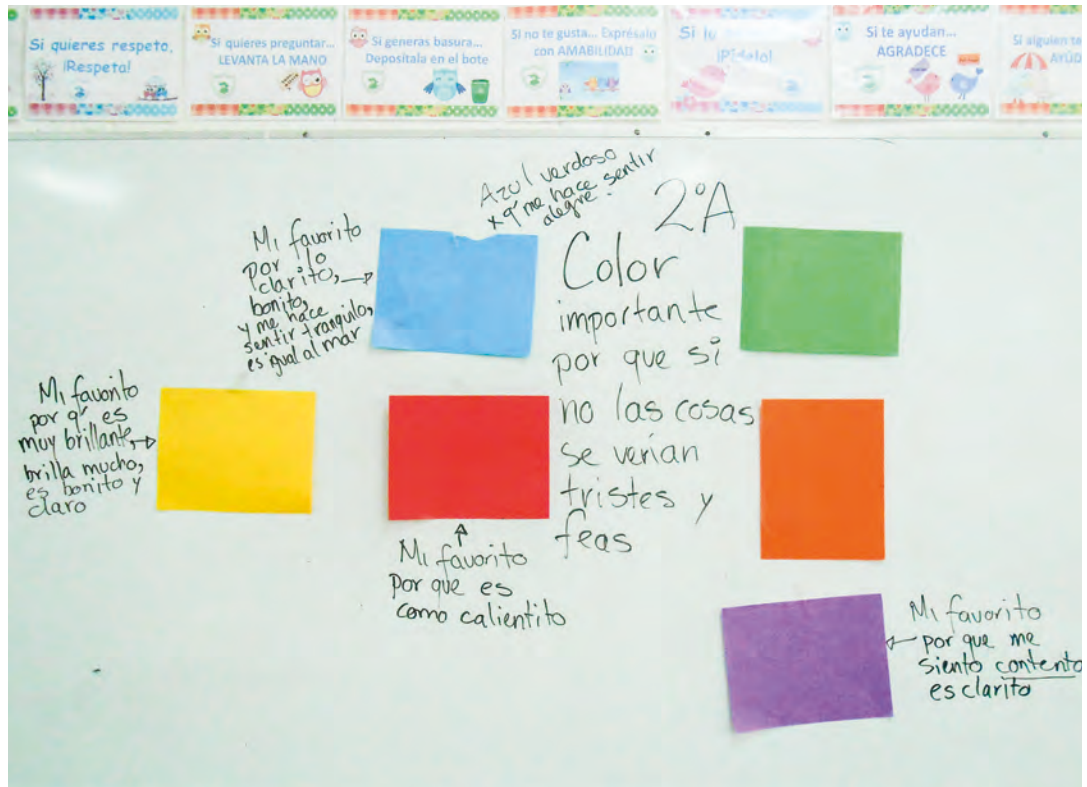 Si quieres respeto,
¡Respeta!
Si quieres preguntar...
LEVANTA LA MANO
Si generas basura...
Deposítala en el bote
Si no te gusta... Exprésalo
con AMABILIDAD
Si lo
¡Pídelo!
Si te ayudan...
AGRADECE
Si alguien te
AYÚD
Azul verdoso
x q' me hace sentir
alegre.
2°A
Mi favorito
por lo
clarito,
bonito,
y me hace
sentir tranquilo,
es igual al mar
Color
importante
por que si
no las cosas
se verían
tristes y
feas
Mi favorito
por q' es
muy brillante,
brilla mucho,
es bonito y
claro
Mi favorito
por que es
como calientito
Mi favorito
por que me
siento contento
es clarito